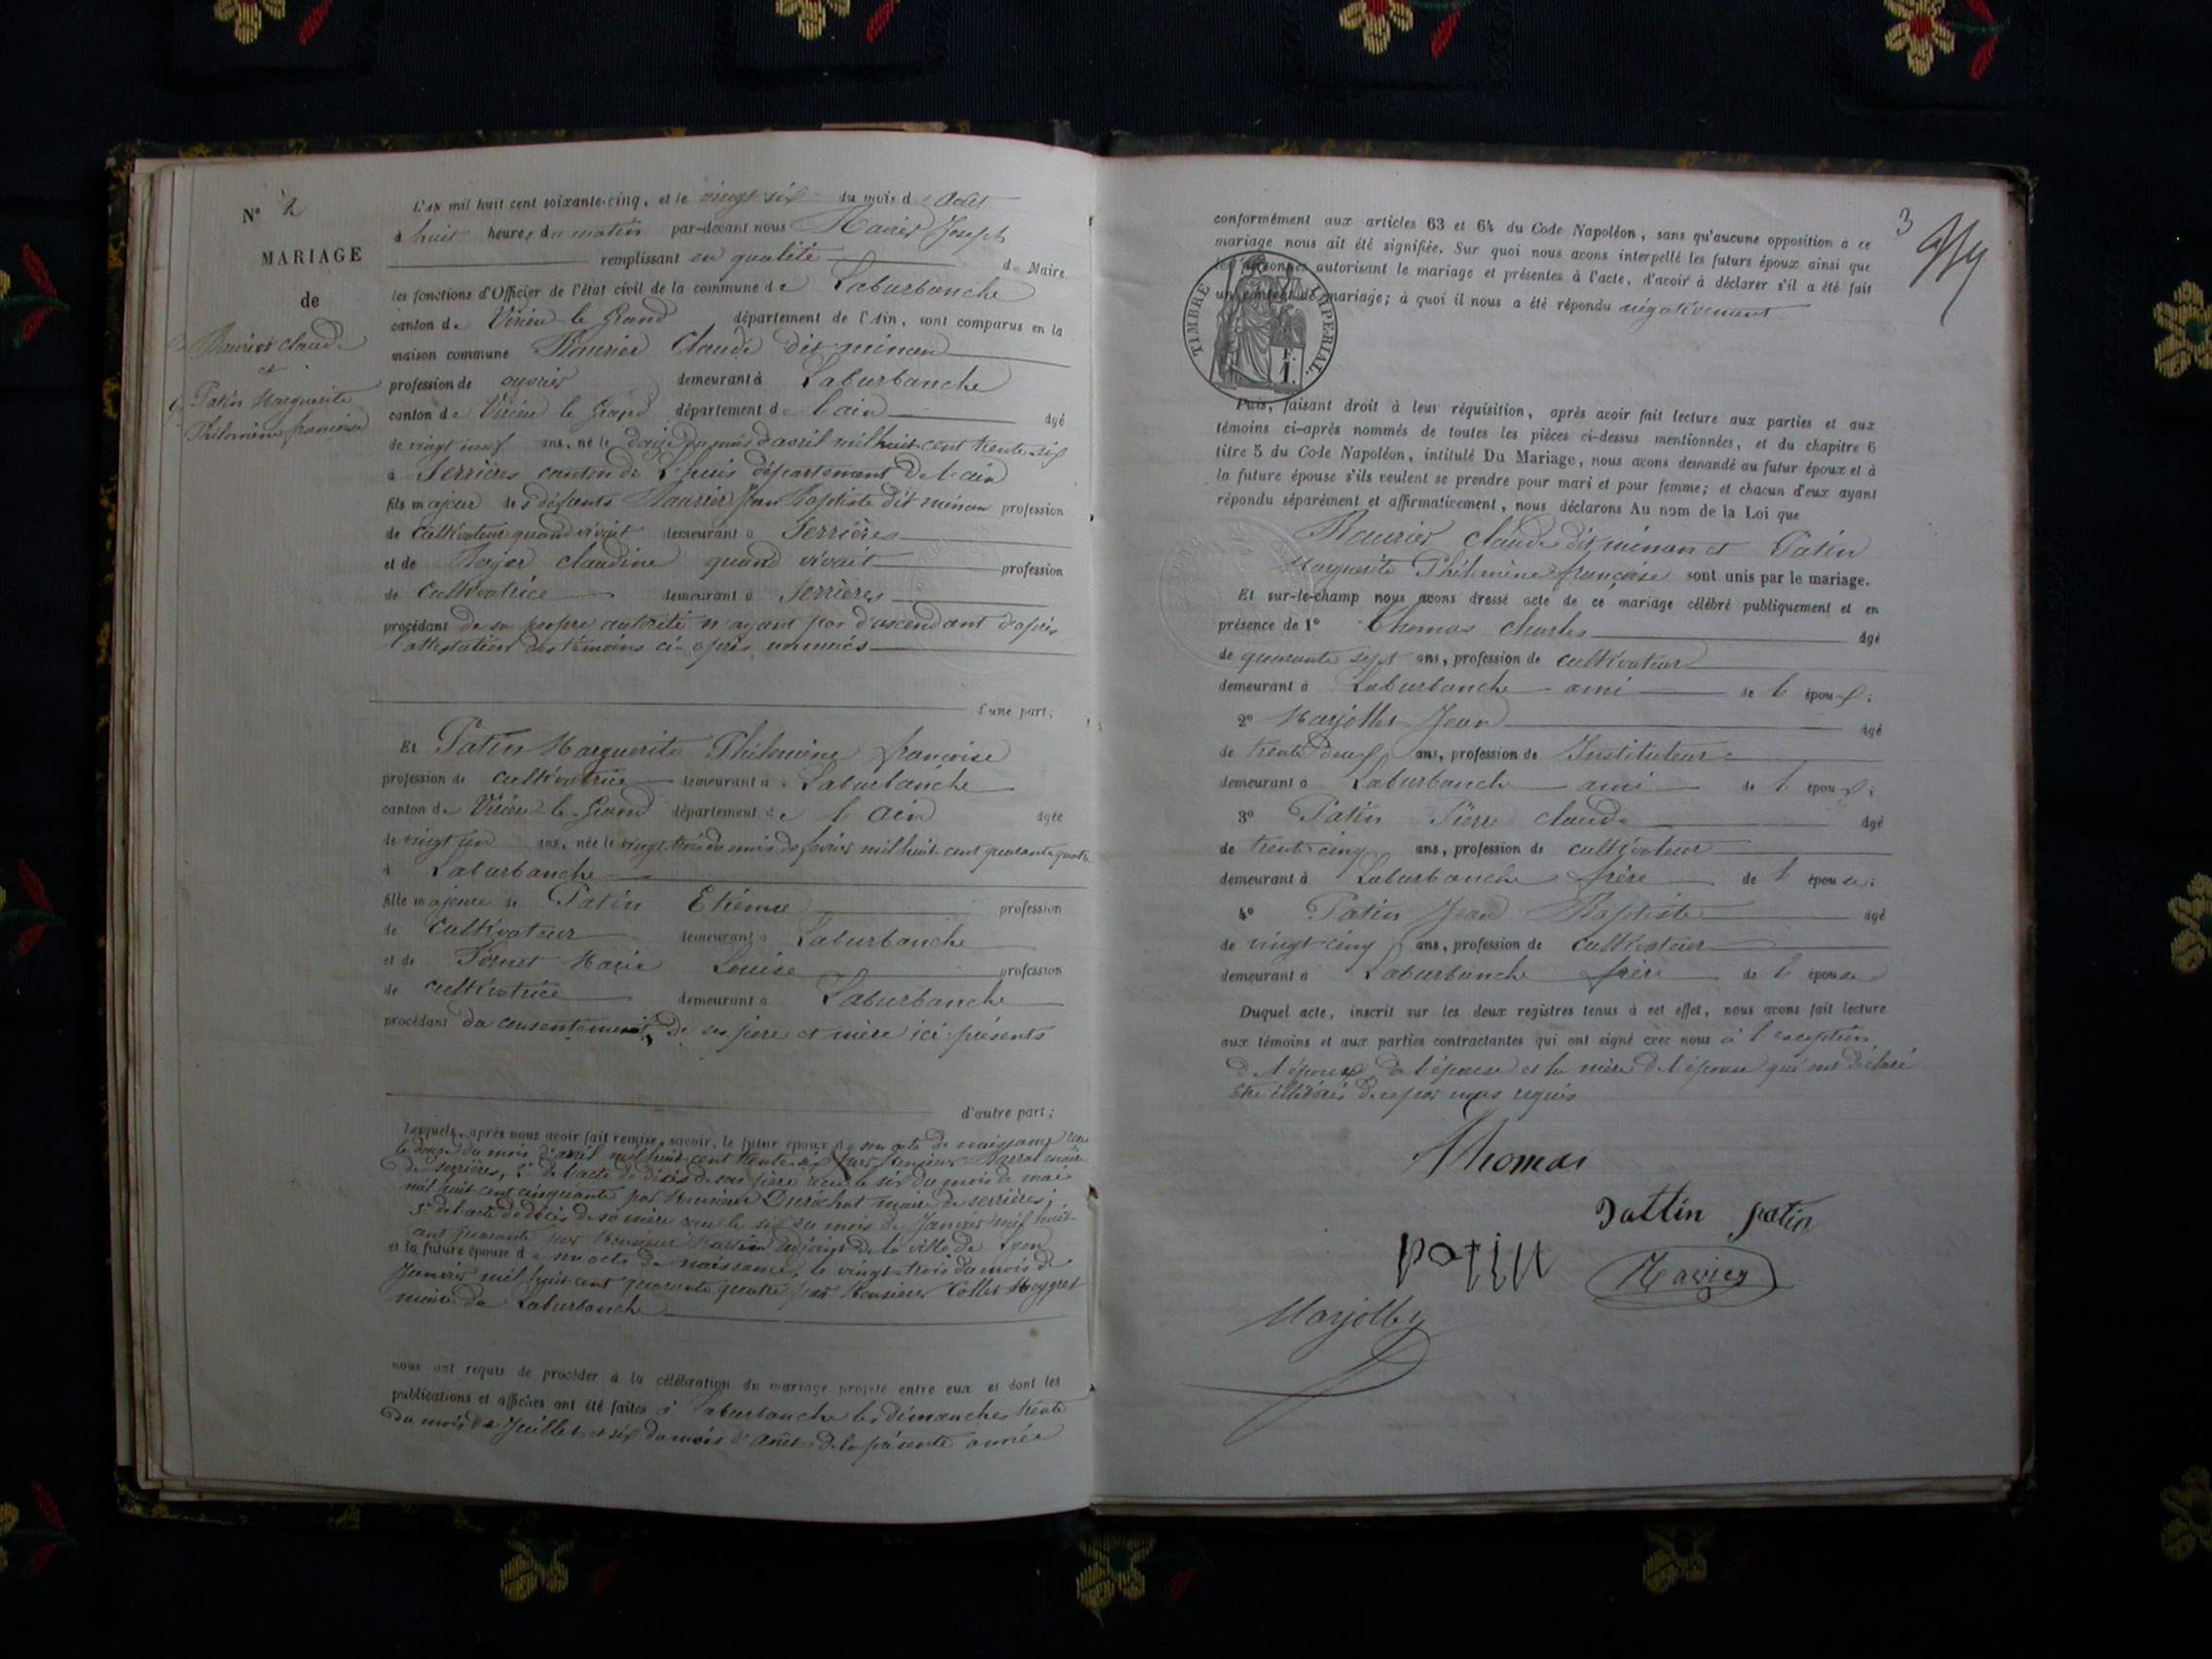 N° 2
MARIAGE
de
Maurier Claude
et
Patin Marguerite
Philomène françoise
L'AN mil huit cent soixante-cinq, et le vingt six du mois d'Août
à huit heures du matin par-devant nous Joseph
remplissant en qualité de Maire
les fonctions d'Officier de l'état civil de la commune de Laburbanche
canton de Virieu le Grand département de l'Ain, sont comparus en la
maison commune Maurier Claude dit minon
profession de ouvrier demeurant à Laburbanche
canton de Virieu le Grand département de l'ain âgé
de vingt neuf ans, né le douze du mois d'avril mil huit cent trente six
à Serrières canton de L'huis département de l'ain
fils majeur des défunts Maurier Jean Baptiste dit minon profession
de cultivateur quand vivait demeurant à Serrières
et de claudine quand vivait profession
de cultivatrice demeurant à Serrières
procédant de sa propre autorité n'ayant pas d'ascendant d'après
l'attestation des témoins ci-après nommés
d'une part;
Et Patin Marguerite Philomène françoise
profession de cultivatrice demeurant à Laburbanche
canton de Virieu le Grand département de l'ain âgée
de vingt un ans, née le vingt trois du mois de mil huit cent quarante quatre
à Laburbanche
fille majeure de Patin Etienne profession
de cultivateur demeurant à Laburbanche
et de Marie Louise profession
de cultivatrice demeurant à Laburbanche
procédant du consentement de ses père et mère ici présents
d'autre part;
Lesquels, après nous avoir fait remise, savoir, le futur époux de son acte de naissance
le douze du mois d'avril mil huit cent trente six par Monsieur maire
de serrières, 2° de l'acte de décès de son père reçu le six du mois de mai
mil huit cent cinquante par Monsieur maire de serrières;
3° de l'acte de décès de sa mère reçu le six du mois de Janvier mil huit
cent quarante par Monsieur adjoint de la ville de Lyon
et la future épouse de son acte de naissance, le vingt-trois du mois de
Janvier mil huit cent quarante quatre par Monsieur Collet
maire de Laburbanche
nous ont requis de procéder à la célébration du mariage projeté entre eux et dont les
publications et affiches ont été faites à Laburbanche les dimanches trente
du mois de Juillet et six du mois d'août de la présente année
3
conformément aux articles 63 et 64 du Code Napoléon, sans qu'aucune opposition à ce
mariage nous ait été signifiée. Sur quoi nous avons interpellé les futurs époux ainsi que
les personnes autorisant le mariage et présentes à l'acte, d'avoir à déclarer s'il a été fait
un contrat de mariage; à quoi il nous a été répondu négativement
TIMBRE IMPERIAL.
F.
1.
Puis, faisant droit à leur réquisition, après avoir fait lecture aux parties et aux
témoins ci-après nommés de toutes les pièces ci-dessus mentionnées, et du chapitre 6
titre 5 du Code Napoléon, intitulé Du Mariage, nous avons demandé au futur époux et à
la future épouse s'ils veulent se prendre pour mari et pour femme; et chacun d'eux ayant
répondu séparément et affirmativement, nous déclarons Au nom de la Loi que
Maurier claude dit minon et Patin
Marguerite Philomène françoise sont unis par le mariage.
Et sur-le-champ nous avons dressé acte de ce mariage célébré publiquement et en
présence de 1° Thomas Charles âgé
de quarante sept ans, profession de cultivateur
demeurant à Laburbanche ami de l'époux;
2° Marjollet Jean âgé
de trente deux ans, profession de Instituteur
demeurant à Laburbanche ami de l'époux;
3° Patin Pierre claude âgé
de trente cinq ans, profession de cultivateur
demeurant à Laburbanche frère de l'épouse;
4° Patin Jean Baptiste âgé
de vingt cinq ans, profession de cultivateur
demeurant à Laburbanche frère de l'épouse
Duquel acte, inscrit sur les deux registres tenus à cet effet, nous avons fait lecture
aux témoins et aux parties contractantes qui ont signé avec nous à l'exception
de l'époux, de l'épouse et la mère de l'épouse qui ont déclaré
être illitérés de ce par nous requis
Thomas
Pattin patin
patin